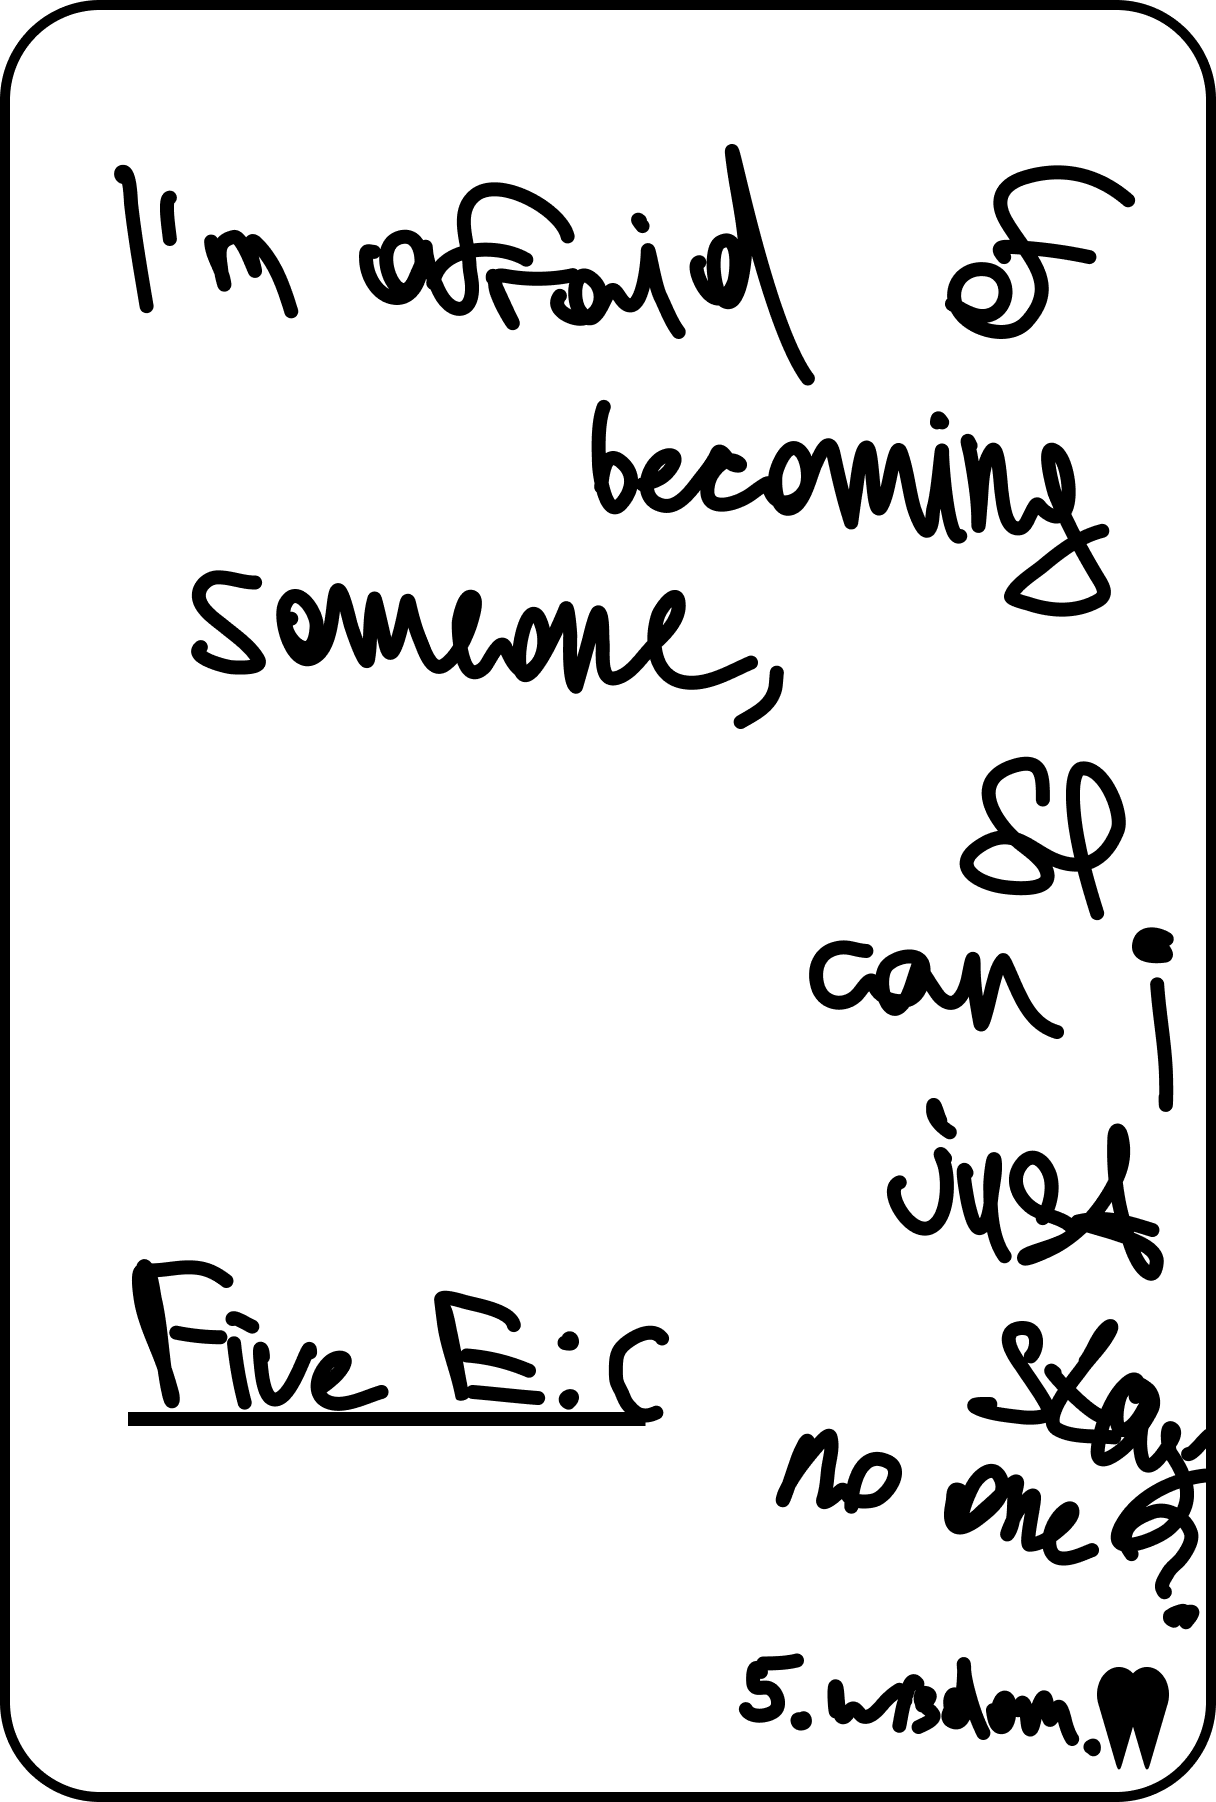 I'm afraid of
becoming
someone,
so
can i
just
stay
no one?
Five E:C
5. wisdom.